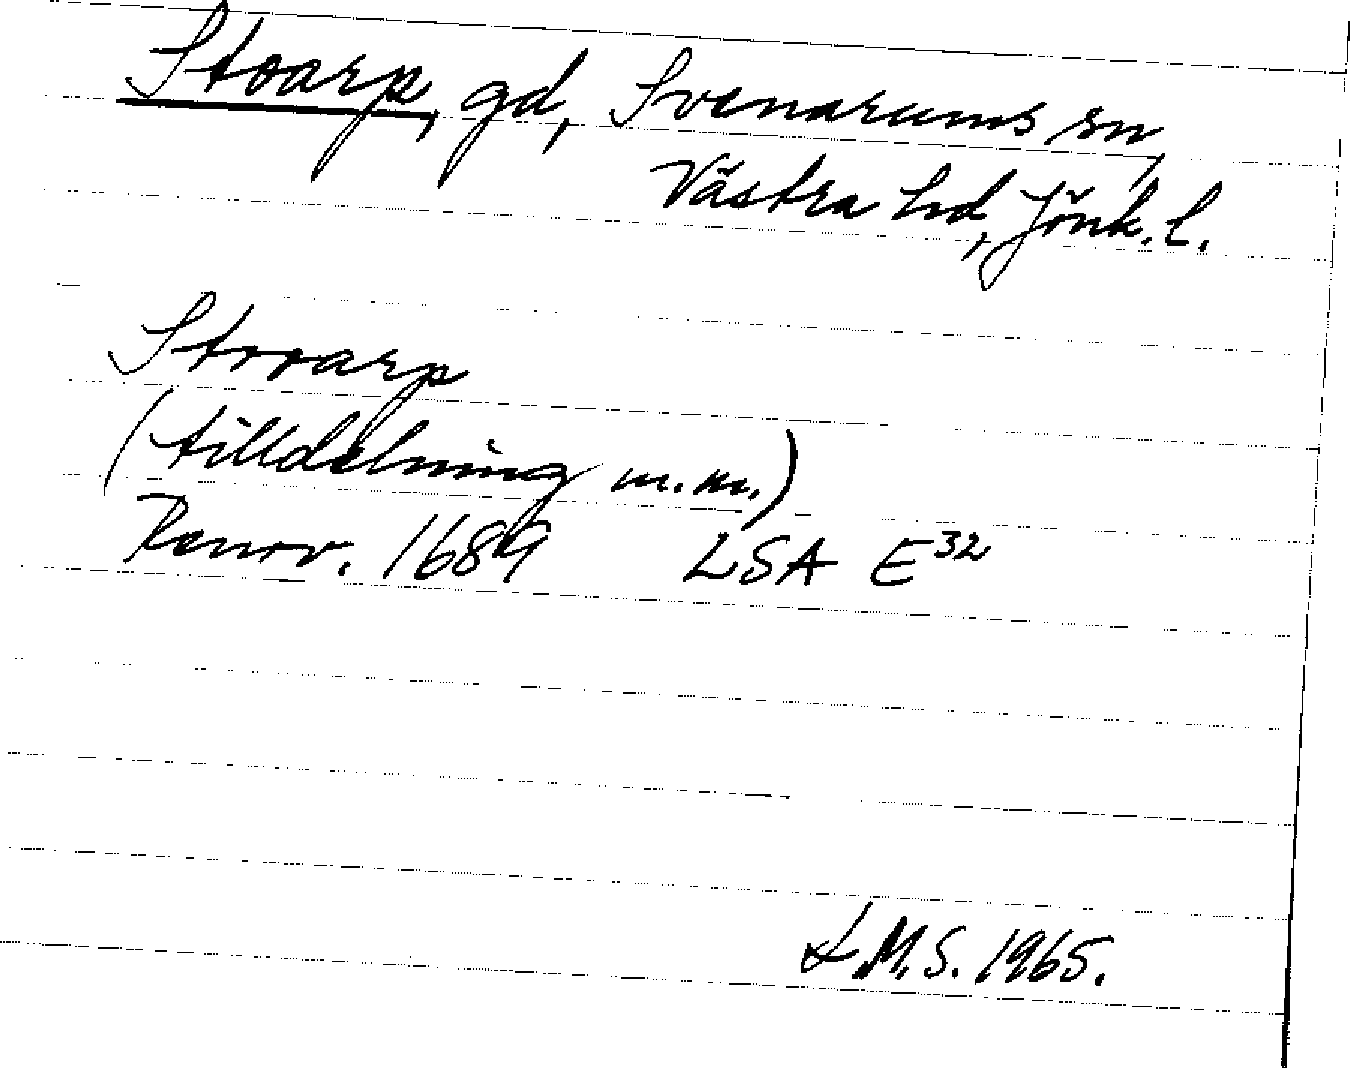 Stoarp, gd, Svenarums sn,
Västra hd, Jönk. l.
Strrarp
(tilldelning m.m.)
Renov. 1689 LSA E32
L.M.S. 1965.